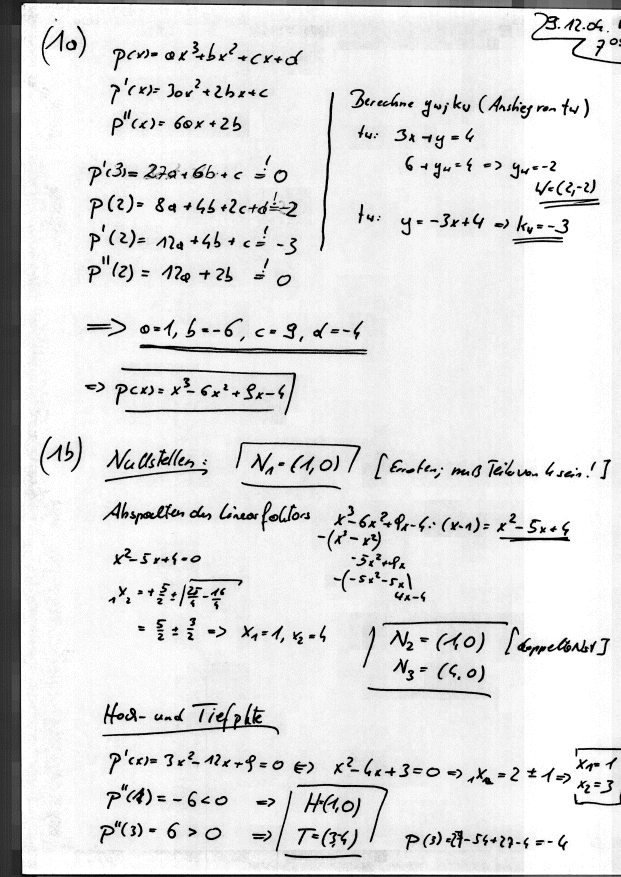 (1a)
9.12.04
p(x) = ax³+bx²+cx+d
p'(x) = 3ax²+2bx+c
p''(x) = 6ax+2b
p'(3) = 27a+6b+c != 0
p(2) = 8a+4b+2c+d != -2
p'(2) = 12a+4b+c != -3
p''(2) = 12a+2b != 0
Berechne yw; kw (Anstieg von tw)
tw: 3x+y=4
6+yw=4 => yw=-2
W=(2,-2)
tw: y=-3x+4 => kw=-3
=> a=1, b=-6, c=9, d=-4
=> p(x) = x³-6x²+9x-4
(1b)
Nullstellen: N₁=(1,0) [Erraten; muß Teiler von 4 sein!]
Abspalten des Linearfaktors x³-6x²+9x-4:(x-1) = x²-5x+4
-(x³-x²)
-5x²+9x
-(-5x²-5x)
4x-4
x²-5x+4=0
₁x₂ = +5/2 ± √25/4-16/4
= 5/2 ± 3/2 => x₁=1, x₂=4
N₂=(1,0) [doppelte Nst]
N₃=(4,0)
Hoch- und Tiefpkte
p'(x) = 3x²-12x+9=0 <=> x²-4x+3=0 => ₁x₂ = 2 ± 1 => x₁=1
x₂=3
p''(1) = -6<0 => H=(1,0)
p''(3) = 6>0 => T=(3,-4) p(3)=27-54+27-4=-4